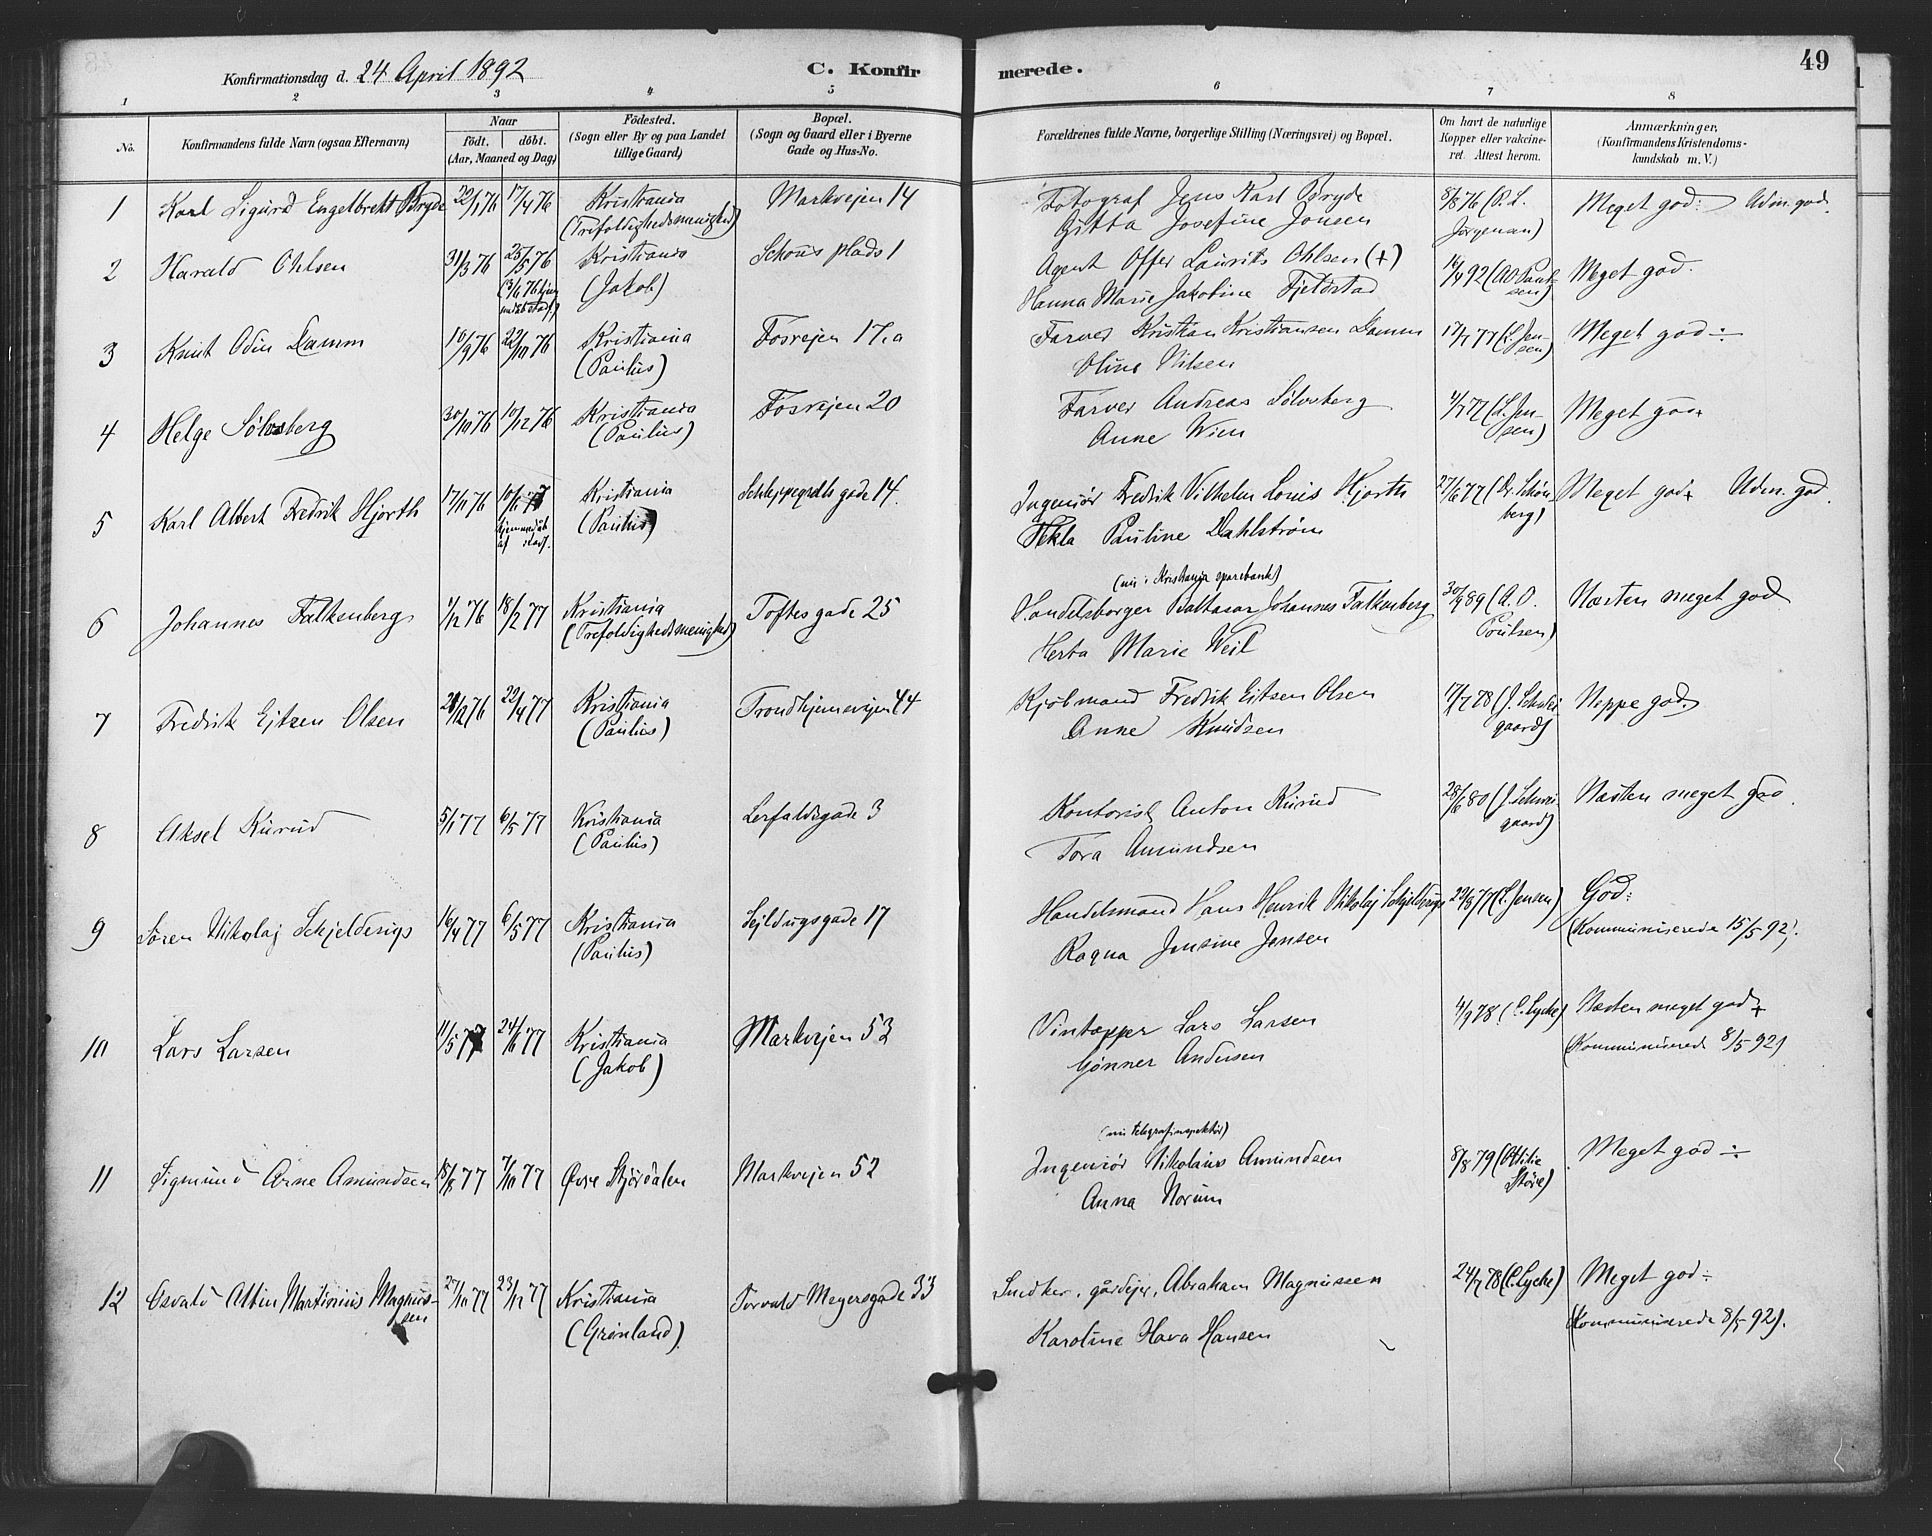 49
Konfirmationsdag d. 24 April 1892 C. Konfirmerede.
1 2 3 4 5 6 7 8
No. Konfirmandens fulde Navn (ogsaa Efternavn)
Naar
födt. döbt.
(Aar, Maaned og Dag)
Födested.
(Sogn eller By og paa Landet
tillige Gaard)
Bopæl.
(Sogn og Gaard eller i Byerne
Gade og Hus-No.
Forældrenes fulde Navne, borgerlige Stilling (Næringsvei) og Bopæl.
Om havt de naturlige
Kopper eller vakcine-
ret. Attest herom.
Anmærkninger.
(Konfirmandens Kristendoms-
kundskab m. V.)
1 Karl Sigurd Engelbrekt Bryde 22/1 76 17/4 76 Kristiania Markvejen 14 Fotograf Jens Karl Bryde 8/8 76 (O. L. Meget god: Udm. god.
(Trefoldighedsmenighed) Gitta Josefine Jonsen Jörgensen)
2 Harald Ohlsen 31/3 76 25/5 76 Kristiania Schous plads 1 Agent Offer Laurits Ohlsen (+) 16/4 92 (A O Poul- Meget god.
(Jakob) Hanna Marie Jakobine Fjeldstad sen)
3 Knut Odin Damm 10/9 76 22/10 76 Kristiania Fosvejen 17.a Farver Kristian Kristiansen Damm 17/7 77 (L. Jen- Meget god ÷
(Paulus) Oline Nilsen sen)
4 Helge Sölvsberg 30/10 76 10/12 76 Kristiania Fosvejen 20 Farver Andreas Sölvsberg 4/7 77 (L. Jen- Meget god
(Paulus) Anne Wien sen)
5 Karl Albert Fredrik Hjorth 17/11 76 Kristiania Schleppegrells gade 14. Ingeniör Fredrik Vilhelm Louis Hjorth 27/6 77 (Dr. Schön Meget god + Udm. god.
(Paulus) Tekla Pauline Dahlström berg)
(nu i Kristiania sparebank)
6 Johannes Falkenberg 4/12 76 18/2 77 Kristiania Toftesgade 25 Handelsborger Baltasar Johannes Falkenberg 30/9 89 (A. O. Næsten meget god
(Trefoldighedsmenighed) Herta Marie Weil Poulsen)
7 Fredrik Eitzen Olsen 21/12 76 22/4 77 Kristiania Trondhjemsvejen 44 Kjöbmand Fredrik Eitzen Olsen 17/7 78 (J. Schwei- Neppe god.
(Paulus) Anne Knudsen gaard)
8 Aksel Kurud 5/1 77 6/5 77 Kristiania Lerfaldsgade 3 Kontorist Anton Kurud 28/6 80 (J. Schwei- Næsten meget god.
(Paulus) Tora Amundsen gaard)
9 Sören Nikolaj Schjelderup 16/4 77 6/5 77 Kristiania Sejldugsgade 17 Handelsmand Hans Henrik Nikolaj Schjelderup 22/8 77 (L. Jensen) God:
(Paulus) Ragna Jensine Jensen (Kommuniserede 15/5 92).
10 Lars Larsen 11/5 77 24/6 77 Kristiania Markvejen 53 Vintapper Lars Larsen 4/9 78 (C. Lycke) Næsten meget god +
(Jakob) Gönner Andersen (Kommuniserede 8/5 92)
(nu telegrafinspektör)
11 Sigmund Arne Amundsen 18/8 77 7/10 77 Øvre Stjördalen Markvejen 52 Ingeniör Nikolaus Amundsen 8/8 79 (Ottilie Meget god ÷
Anna Norum Störe)
12 Osvald Albin Martinius Magnus- 27/10 77 23/12 77 Kristiania Torvald Meyersgade 33 Snedker, gårdejer, Abraham Magnussen 24/7 78 (C. Lycke) Meget god ÷
sen (Grönland). Karoline Hava Hansen (Kommuniserede 8/5 92).